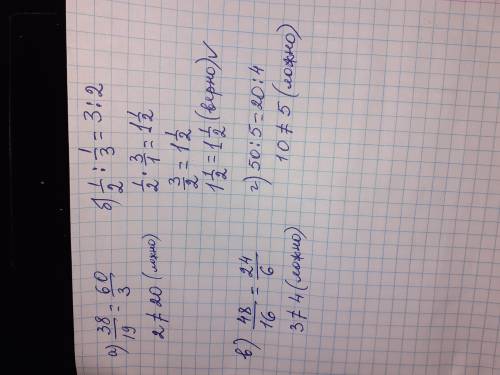 а) 38/19 = 60/3
2 ≠ 20 (ложно)
б) 1/2 : 1/3 = 3 : 2
1/2 · 3/1 = 1 1/2
3/2 = 1 1/2
1 1/2 = 1 1/2 (верно) ✓
в) 48/16 = 24/6
3 ≠ 4 (ложно)
г) 50 : 5 = 20 : 4
10 ≠ 5 (ложно)